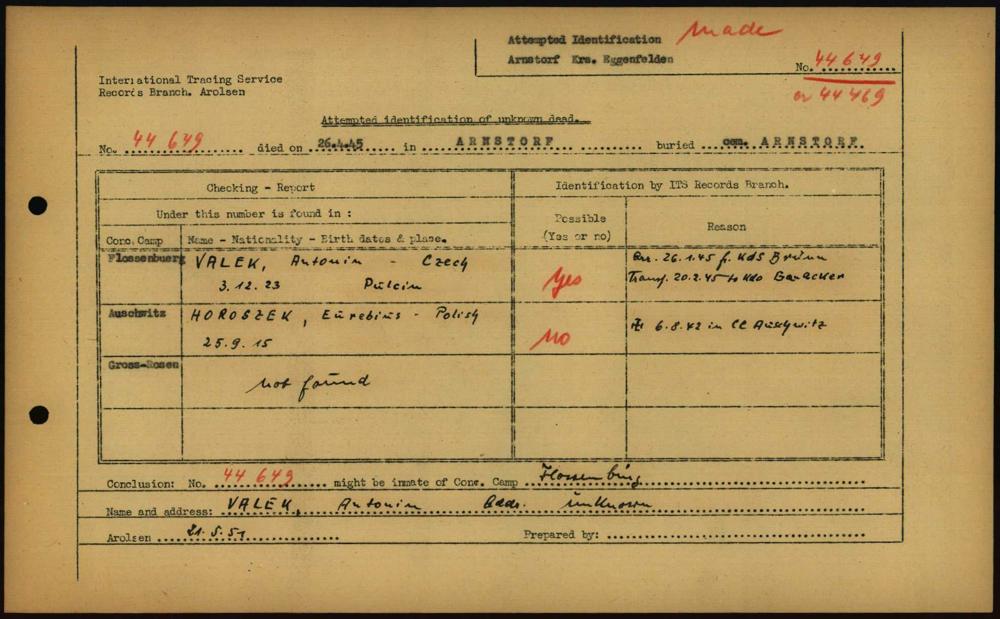 Attempted Identification made
Arnstorf Krs. Eggenfelden
No. 44 649
or 44 469
International Tracing Service
Records Branch. Arolsen
Attempted identification of unknown dead.
No. 44 649 died on 26.4.45 in ARNSTORF buried cem. ARNSTORF.
Checking - Report
Identification by ITS Records Branch.
Under this number is found in :
Possible
(Yes or no)
Reason
Conc. Camp
Name - Nationality - Birth dates & place.
Flossenbuerg
VALEK, Antonin - Czech
3.12.23 Pulcin
yes
Arr. 26.1.45 f. KdS Brünn
Transf. 20.2.45 to Kdo Ganacker
Auschwitz
HOROSZEK, Eurebius - Polish
25.9.15
NO
6.8.42 in CC Auschwitz
Gross-Rosen
not found
Conclusion: No. 44 649 might be inmate of Conc. Camp Flossenbürg
Name and address: VALEK, Antonin Addr. unknown
Arolsen 21.5.51
Prepared by: